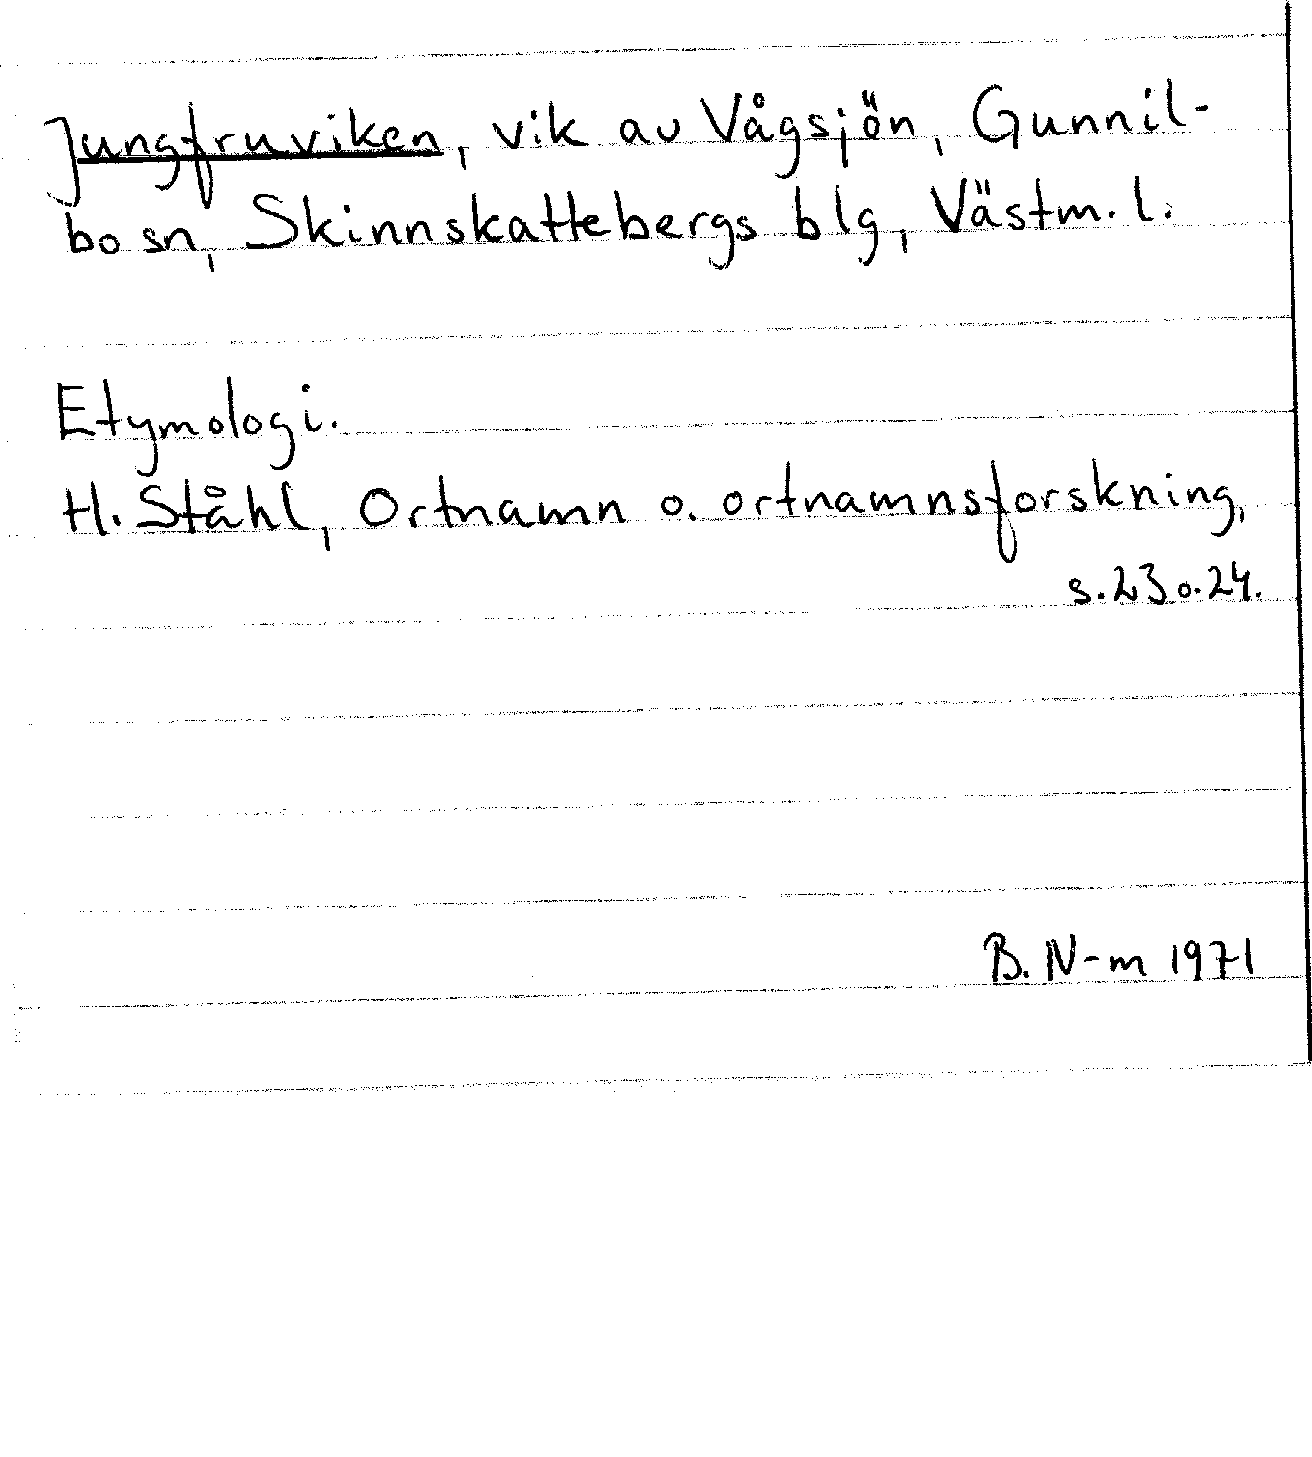 Jungfruviken, vik av Vågsjön, Gunnil-
bo sn, Skinnskattebergs blg, Västm. l.
Etymologi.
H. Ståhl, Ortnamn o. ortnamnsforskning,
s. 23 o. 24.
B. N-m 1971